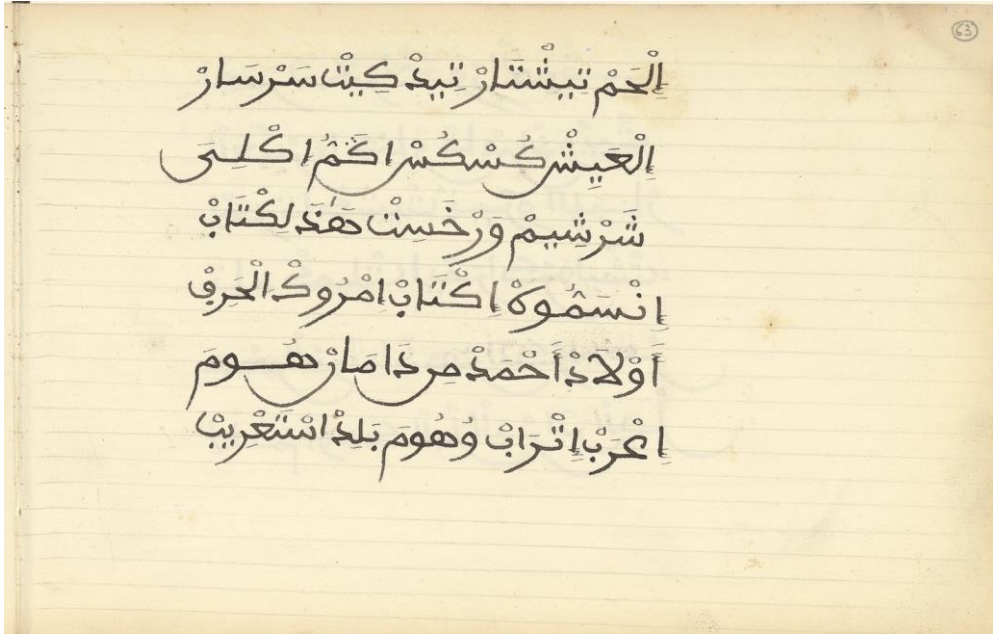 63
اِلْحَمْ تِيشْتَارْ تِيدْ كِيتْ سَرْسَارْ
اِلْعَيِشْ كُسْكُسْ اكَمُ اكْلِىَ
شَرْشِيمْ وَرْخَسِتْ هَٰذَ لِكْتَابْ
اِنْسَمُوهْ اِكْتَابْ اِمْرُوكْ الْحَرِفْ
أَوْلَادْ أَحْمَدْ مِن دَامَانْ هُومَ
اِعْرَبْ اِتْرَابْ وُهُومَ بَلِدْ اسْتَعْرِيبْ